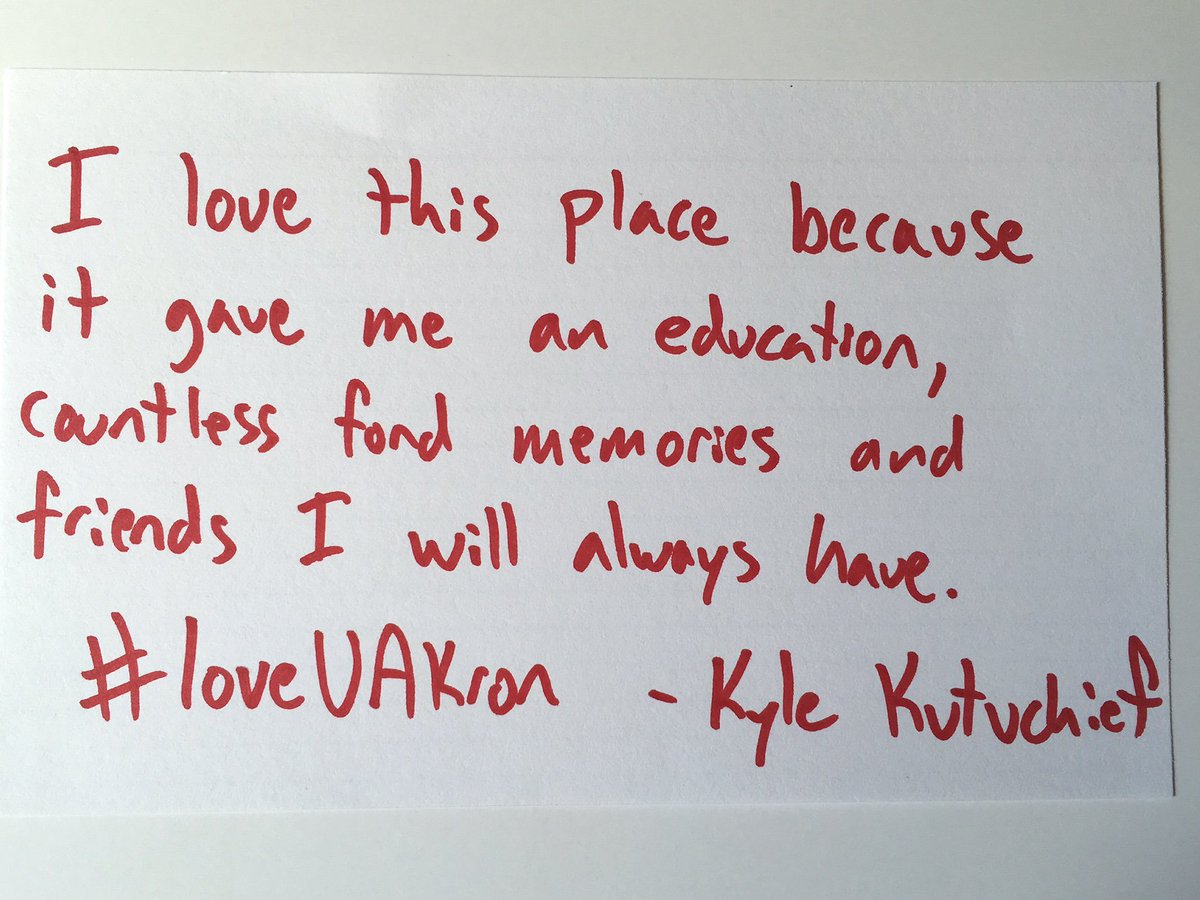 I love this place because
it gave me an education,
countless fond memories and
friends I will always have.
#loveUAKron - Kyle Kutuchief